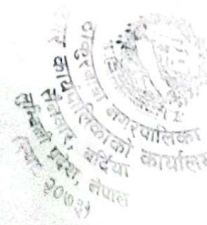 ठाकुरबाबा नगरपालिका
नगर कार्यपालिकाको कार्यालय
बर्दिया
लुम्बिनी प्रदेश, नेपाल
२०७३